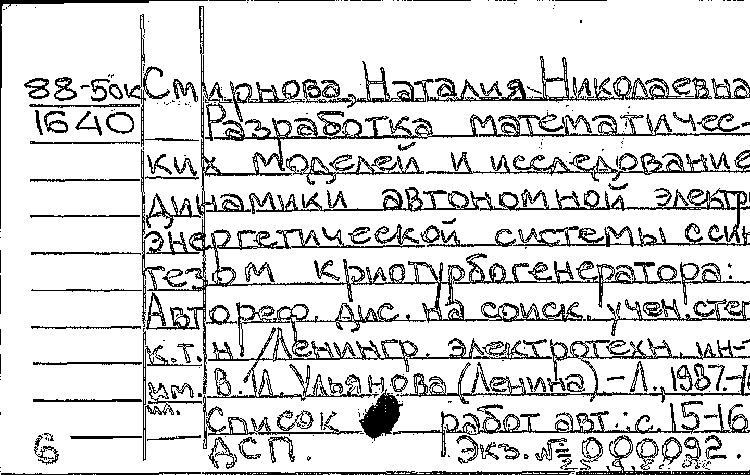 88-5ок Смирнова, Наталия Николаевна
1640 Разработка математичес-
ких моделей и исследование
динамики автономной электр
энергетической системы с син
тезом криотурбогенератора:
Автореф. дис. на соиск. учен. степ
к.т.н. / Ленингр. электротехн. ин-т
им. В.И Ульянова (Ленина) - Л., 1987.-
ил.
Список работ авт.: с. 15-16
6 ДСП. Экз. № 000092.